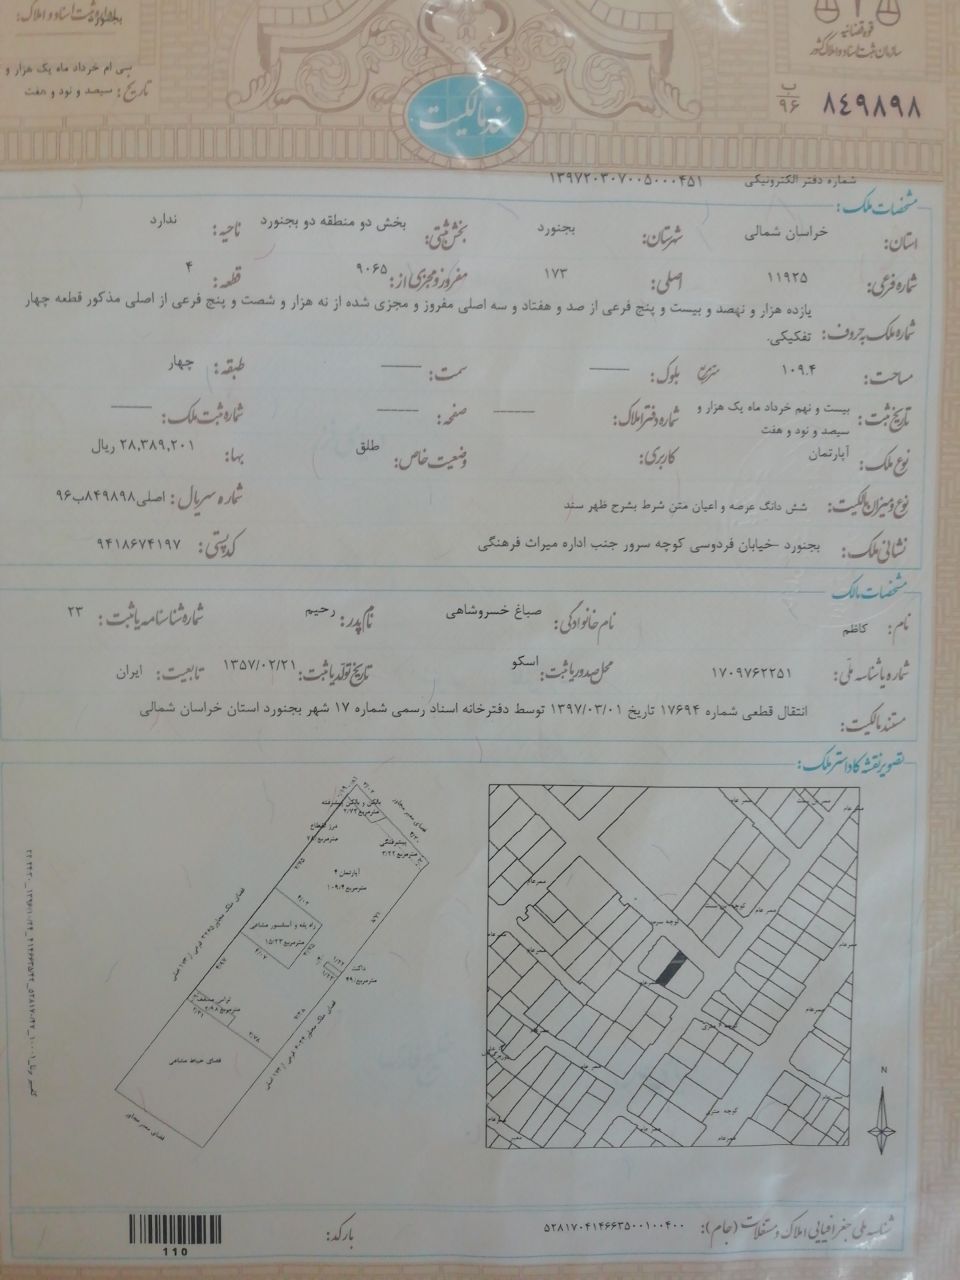 قوه قضائیه
سازمان ثبت اسناد و املاک کشور
سند مالکیت
۸۴۹۸۹۸ ب ۹۶
تاریخ: سی ام خرداد ماه یک هزار و سیصد و نود و هفت
شماره دفتر الکترونیکی ۱۳۹۷۲۰۳۰۷۰۰۵۰۰۰۴۵۱
مشخصات ملک:
استان: خراسان شمالی شهرستان: بجنورد بخش ثبتی: بخش دو منطقه دو بجنورد ناحیه: ندارد
شماره فرعی: ۱۱۹۲۵ اصلی: ۱۷۳ مفروز و مجزی از: ۹۰۶۵ قطعه: ۴
شماره ملک به حروف: یازده هزار و نهصد و بیست و پنج فرعی از صد و هفتاد و سه اصلی مفروز و مجزی شده از نه هزار و شصت و پنج فرعی از اصلی مذکور قطعه چهار
تفکیکی.
مساحت: ۱۰۹.۴ مترمربع بلوک: ——— سمت: ——— طبقه: چهار
تاریخ ثبت: بیست و نهم خرداد ماه یک هزار و سیصد و نود و هفت شماره دفتر املاک: ——— صفحه: ——— شماره ثبت ملک: ———
نوع ملک: آپارتمان کاربری: وضعیت خاص: طلق بها: ۲۸,۳۸۹,۲۰۱ ریال
نوع و میزان مالکیت: شش دانگ عرصه و اعیان متن شرط بشرح ظهر سند شماره سریال: اصلی۸۴۹۸۹۸ب۹۶
نشانی ملک: بجنورد -خیابان فردوسی کوچه سرور جنب اداره میراث فرهنگی کد پستی: ۹۴۱۸۶۷۴۱۹۷
مشخصات مالک
نام: کاظم نام خانوادگی: صباغ خسروشاهی نام پدر: رحیم شماره شناسنامه یا ثبت: ۲۳
شماره یا شناسه ملی: ۱۷۰۹۷۶۲۲۵۱ محل صدور یا ثبت: اسکو تاریخ تولد یا ثبت: ۱۳۵۷/۰۲/۲۱ تابعیت: ایران
مستند مالکیت: انتقال قطعی شماره ۱۷۶۹۴ تاریخ ۱۳۹۷/۰۳/۰۱ توسط دفترخانه اسناد رسمی شماره ۱۷ شهر بجنورد استان خراسان شمالی
تصویر نقشه کاداستر ملک:
آپارتمان ۴
۱۰۹/۴ مترمربع
راه پله و آسانسور مشاعی
۱۵/۲۳ مترمربع
فضای حیاط مشاعی
فضای معبر مجاور
N
شناسه ملی جغرافیایی املاک و مستغلات (جام): ۵۲۸۱۷۰۴۱۴۶۶۳۵۰۰۱۰۰۴۰۰
بارکد:
110